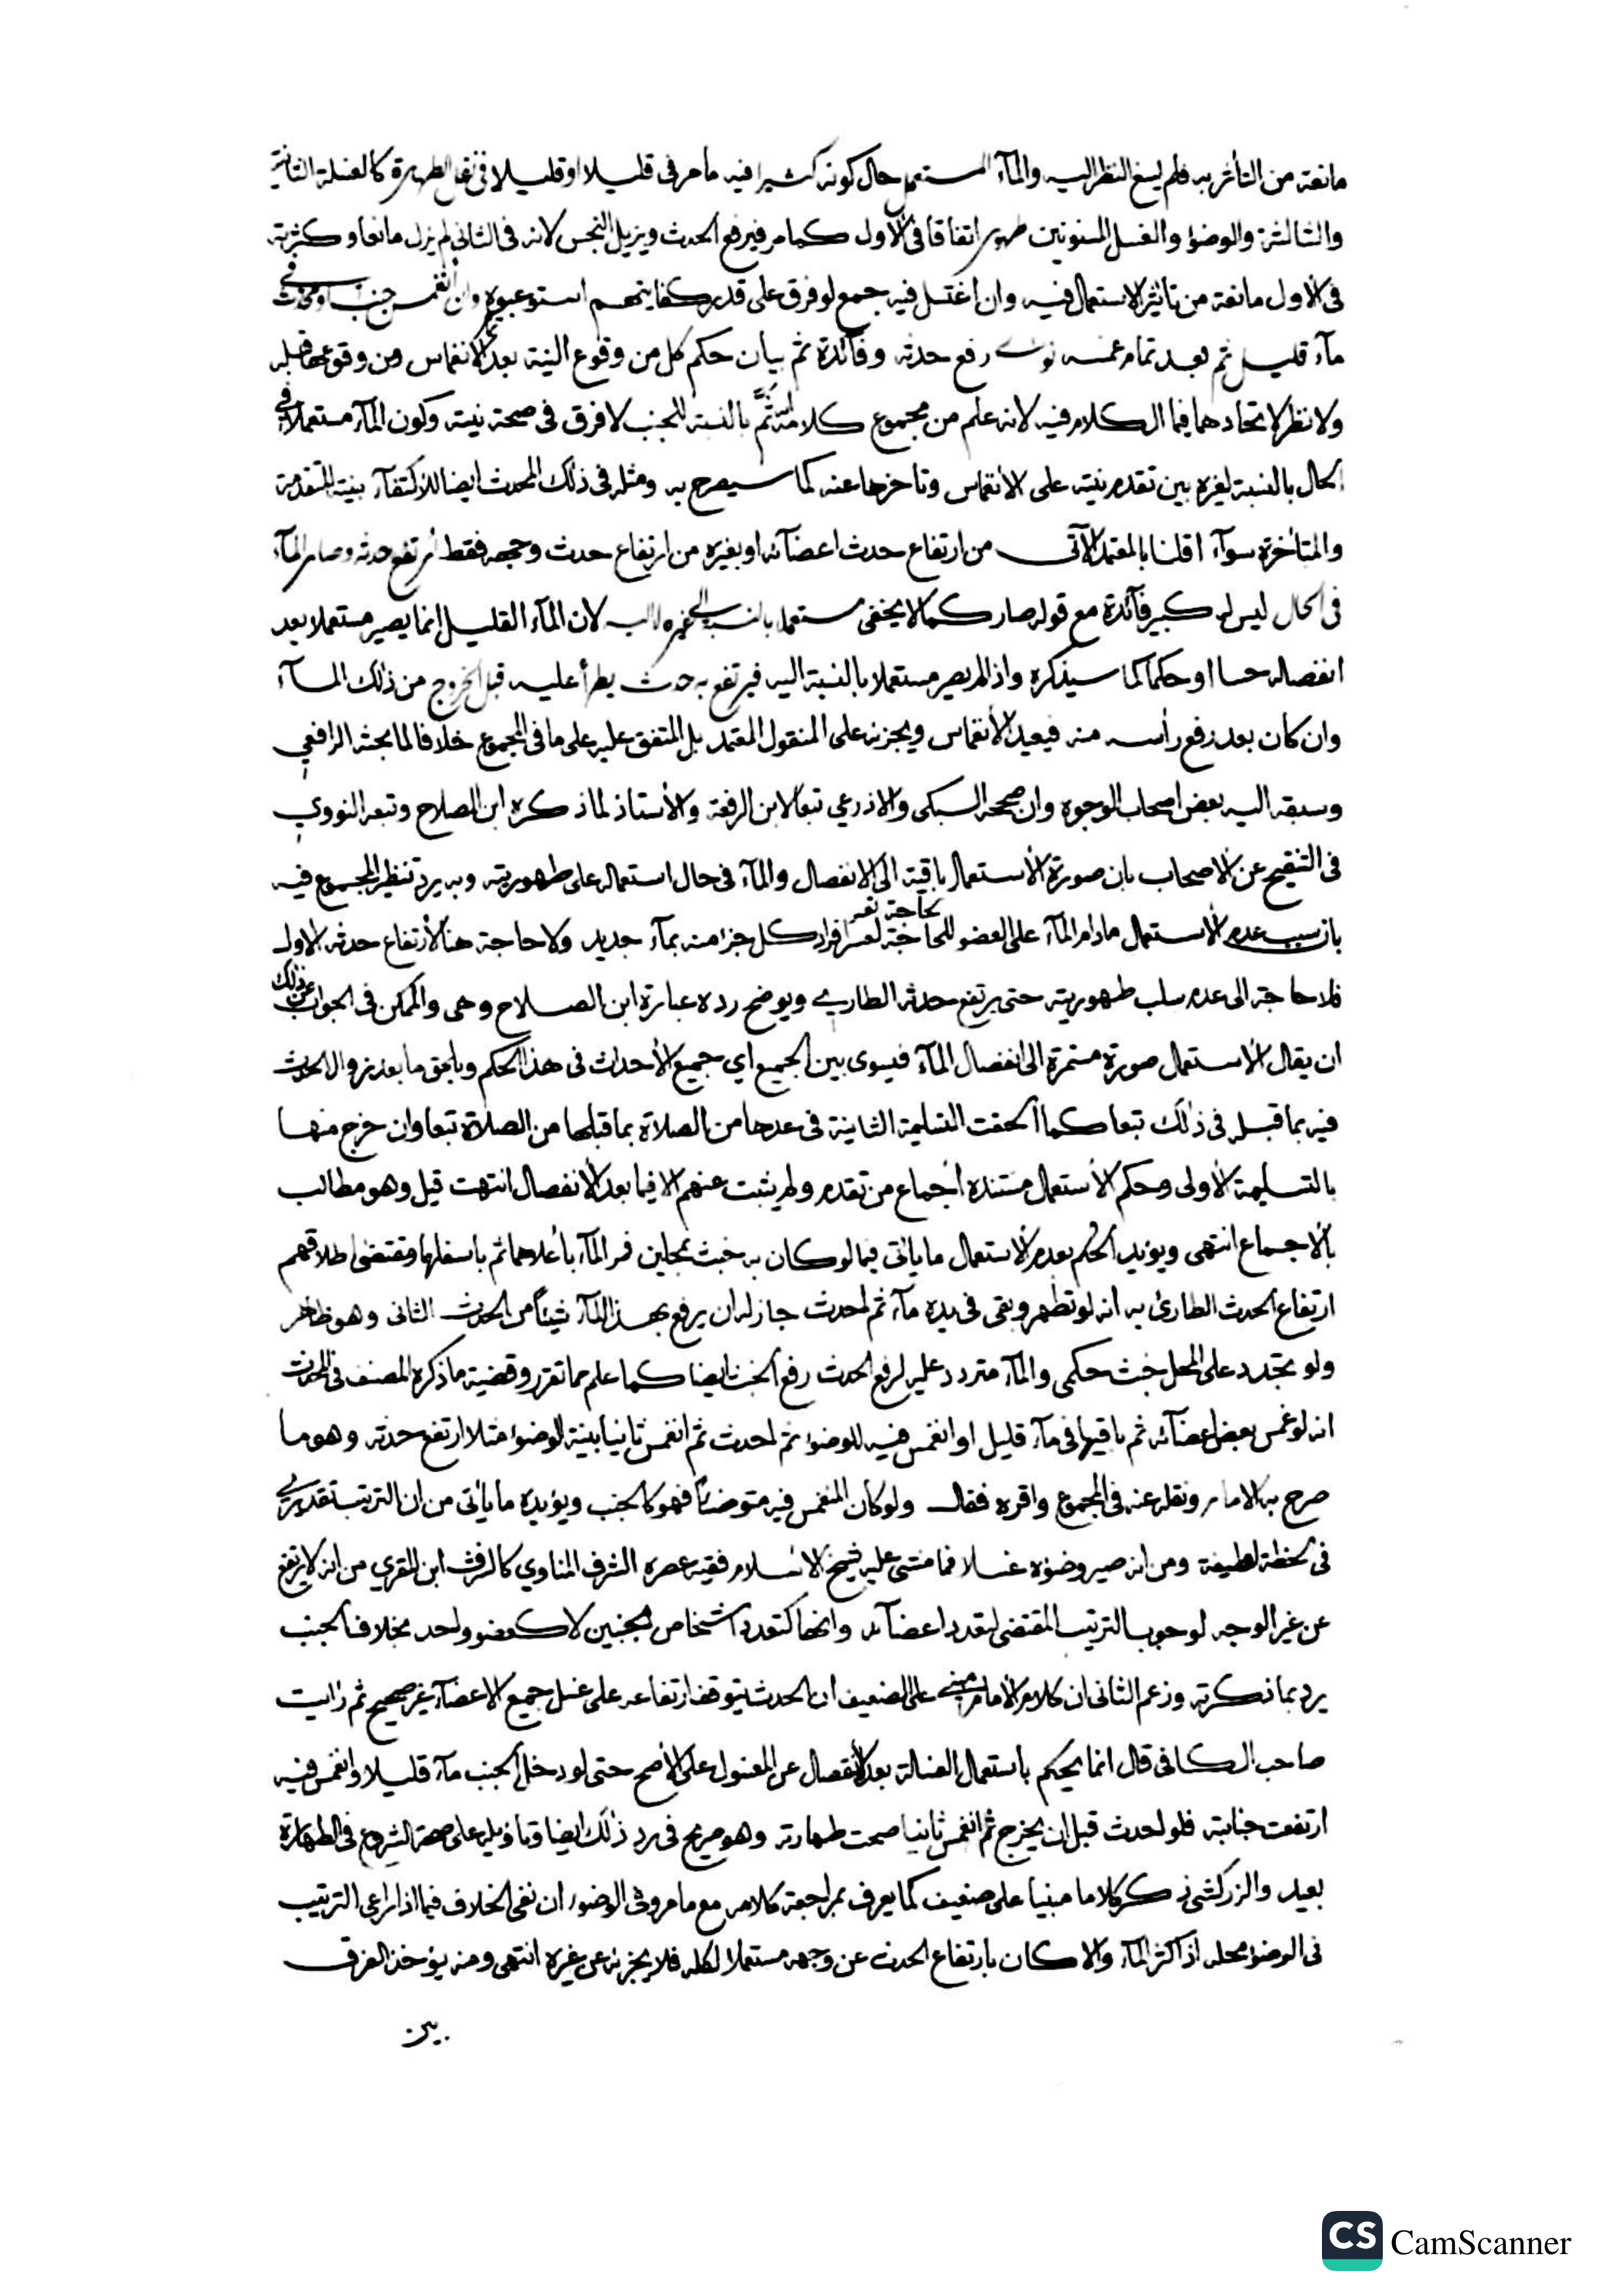 مانعة من التأثر به فلم يسغ النظر اليه والمآء المستعمل حال كونه كثيرا فيه ما مر فى قليلا او قليلا فى نفل الطهارة كالغسلة الثانية
والثالثة والوضوء والغسل المسنونين طهور اتفاقا فى الأول كما مر فيرفع الحدث ويزيل النجس لانه فى الثانى لم يزل مانعا وكثرته
فى الأول مانعة من تأثير الاستعمال فيه وان اغتسل فيه جمع لو فرق على قدر كفايتهم استوعبوه وان انغمس جنب او محدث فى
مآء قليل ثم بعد تمام غمسه نوى رفع حدثه وفآئدة ثم بيان حكم كل من وقوع النية بعد تمام الانغماس ومن وقوعها قبله
ولا نظر لاتحادهما فيما الكلام فيه لانه علم من مجموع كلامه ثم بالنسبة للجنب لا فرق فى صحة نيته وكون المآء مستعملا فى
الحال بالنسبة لغيره بين تقدم نيته على الأنغماس وتأخرها عنه كما سيصرح به ومثله فى ذلك المحدث ايضا للاكتفآء بنيته المتقدمة
والمتأخرة سوآء اقلنا بالمعتمد الآتى من ارتفاع حدث اعضآئه او بغيره من ارتفاع حدث وجهه فقط ارتفع حدثه وصار المآء
فى الحال ليس له كبير فآئدة مع قوله صار كما لا يخفى مستعملا بالنسبة الى غيره لا اليه لان المآء القليل انما يصير مستعملا بعد
انفصاله حسا او حكما كما سيذكره واذا لم يصر مستعملا بالنسبة اليه فيرتفع به حدث يطرأ عليه قبل الخروج من ذلك المآء
وان كان بعد رفع رأسه منه فيعيد الأنغماس ويجزئه على المنقول المعتمد بل المتفق عليه على ما فى المجموع خلافا لما بحثه الرافعي
وسبقه اليه بعض اصحاب الوجوه وان صححه السبكى والاذرعي تبعا لابن الرفعة والأستاذ لما ذكره ابن الصلاح وتبعه النووي
فى التنقيح عن الاصحاب بان صورة الأستعمال باقية الى الانفصال والمآء فى حال استعماله على طهوريته وبه يرد تنظير المجموع فيه
بان سبب عدم الأستعمال ما دام المآء على العضو للحاجة لعسر افراد كل جزء منه بمآء جديد ولا حاجة هنا لأرتفاع حدثه الاول
فلا حاجة الى عدم سلب طهوريته حتى يرتفع حدثه الطارى ويوضح رده عبارة ابن الصلاح وهى والممكن فى الجواب عن ذلك
ان يقال الأستعمال صورة مستمرة الى انفصال المآء فيسوى بين الجميع اي جميع الأحداث فى هذا الحكم ويلحق ما بعد زوال الحدث
فيه بما قبله فى ذلك تبعا كما ألحقت التسليمة الثانية فى عدها من الصلاة بما قبلها من الصلاة تبعا وان خرج منها
بالتسليمة الأولى وحكم الأستعمال مستنده اجماع من تقدم ولم يثبت عنهم الا فيما بعد الأنفصال انتهت قيل وهو مطالب
بالاجماع انتهى ويؤيد الحكم بعدم الاستعمال ما يأتى فيما لو كان به خبث بمحلين فمر المآء باعلاهما ثم باسفلهما ومقتضى اطلاقهم
ارتفاع الحدث الطارئ به انه لو تطهر وبقى فى يده مآء ثم احدث جاز له ان يرفع بهذا المآء شيئا من الحدث الثانى وهو ظاهر
ولو تجدد على المحل خبث حكمى والمآء متردد عليه لرفع الحدث رفع الخبث ايضا كما علم مما تقرر وقضية ما ذكره المصنف فى المحدث
انه لو غمس بعض اعضآئه ثم باقيها فى مآء قليل او انغمس فيه للوضوء ثم احدث ثم انغمس ثانيا بنية الوضوء مثلا ارتفع حدثه وهو ما
صرح به الامام ونقله عنه فى المجموع واقره فقال ولو كان المنغمس فيه متوضئا فهو كالجنب ويؤيده ما يأتى من ان الترتيب تقديرى
فى لحظة لطيفة ومن انه صير وضوءه غسلا فما مشى عليه شيخ الاسلام فقيه عصره الشرف المناوي كالشرف ابن المقري من انه لا يرتفع
عن غير الوجه لوجوب الترتيب المقتضى لتعدد اعضآئه وانها كتعدد اشخاص المجنبين لا كعضو واحد بخلاف الجنب
يرد بما ذكرته وزعم الثانى ان كلام الأمام مبنى على الضعيف ان الحدث يتوقف ارتفاعه على غسل جميع الاعضآء غير صحيح ثم رأيت
صاحب الكافى قال انما يحكم بأستعمال الغسالة بعد الأنفصال عن المغسول على الأصح حتى لو دخل الجنب مآء قليلا وانغمس فيه
ارتفعت جنابته فلو احدث قبل ان يخرج ثم انغمس ثانيا صحت طهارته وهو صريح فى رد ذلك ايضا وتأويله على صحة الشروع فى الطهارة
بعيد والزركشى ذكر كلاما مبنيا على ضعيف كما يعرف بمراجعة كلامه مع ما مر وفى الوضوء ان نفى الخلاف فيما اذا راعى الترتيب
فى الوضوء محله اذا كثر المآء والا كان بارتفاع الحدث عن وجهه مستعملا لكله فلا يجزئه عن غيره انتهى ومنه يؤخذ الفرق
بين
CS CamScanner